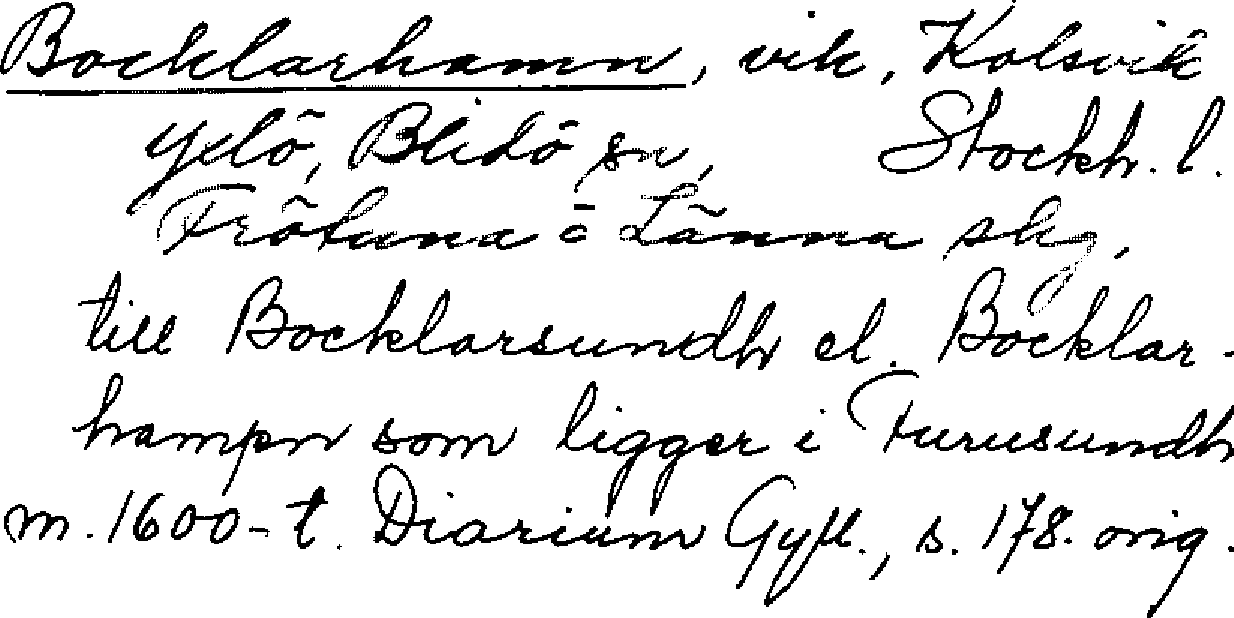 Bocklarhamn, vik, Kolsvik
Yxlö, Blidö sn, Stockh. l.
Frötuna o Länna skg,
till Bocklarsundh el. Bocklar-
hampn som ligger i Furusundh
m. 1600-t. Diarium Gyll., s. 178. orig.